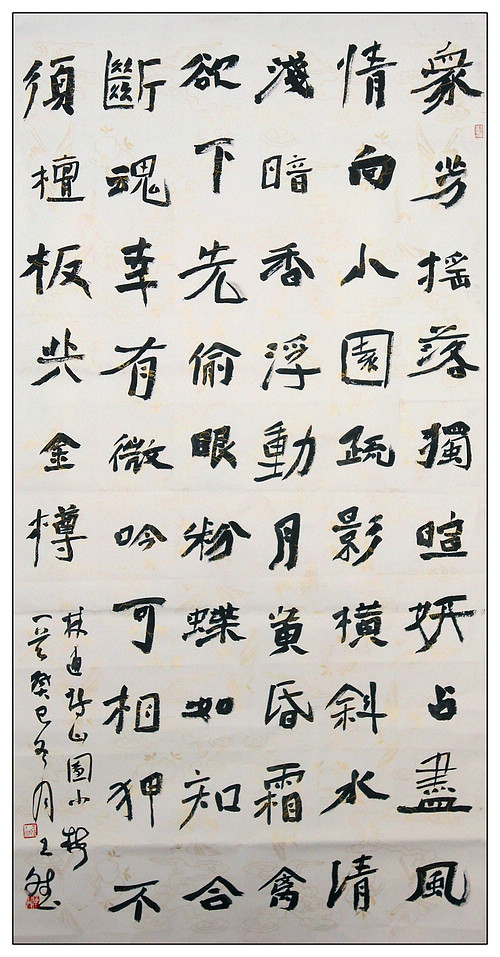 衆芳摇落獨暄妍占盡風
情向小園疏影橫斜水清
淺暗香浮動月黃昏霜禽
欲下先偷眼粉蝶如知合
斷魂幸有微吟可相狎不
須檀板共金樽
林逋詩山園小梅
一首癸巳冬月王